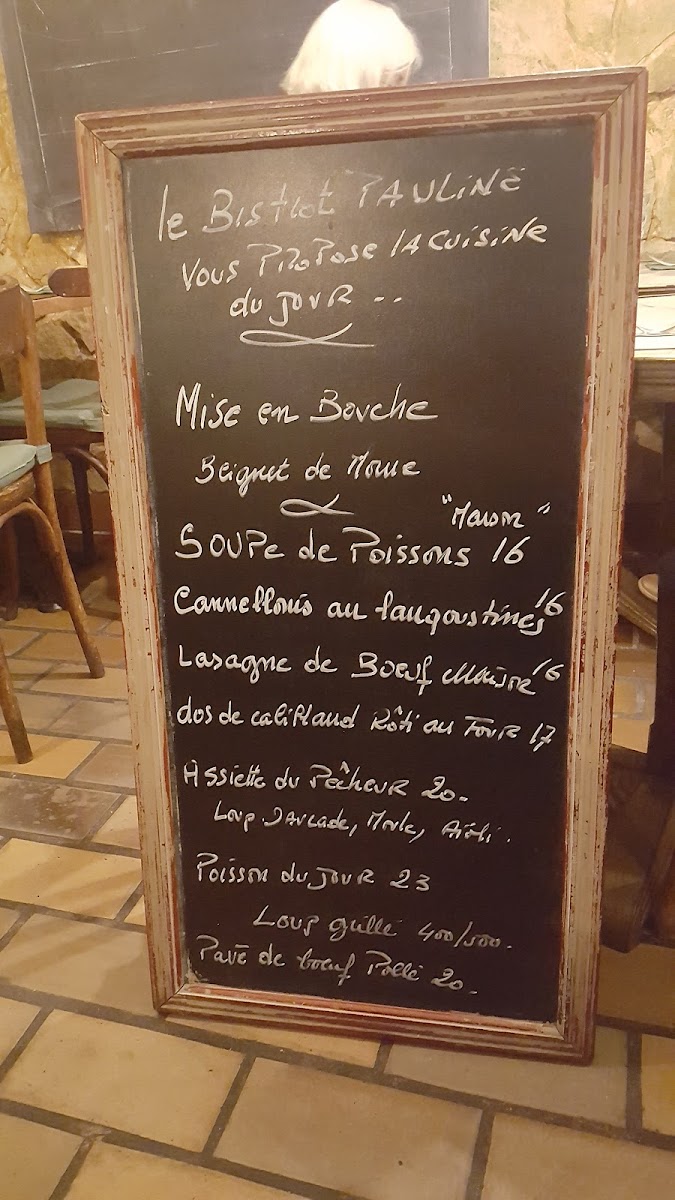 le BistRot PAULINE
VOUS PROPOSE LA CUISINE
du JOUR ..
Mise en Bouche
Beignet de Morue
"Maison"
SOUPe de Poissons 16
Cannellonis au langoustines 16
Lasagne de Boeuf Maison 16
dos de Rôti au FOUR 17
Assiette du PêcheuR 20.
Loup Daurade, Moule, Aïoli.
Poisson du JOUR 23
Loup grillé 400/500.
Pavé de boeuf 20.